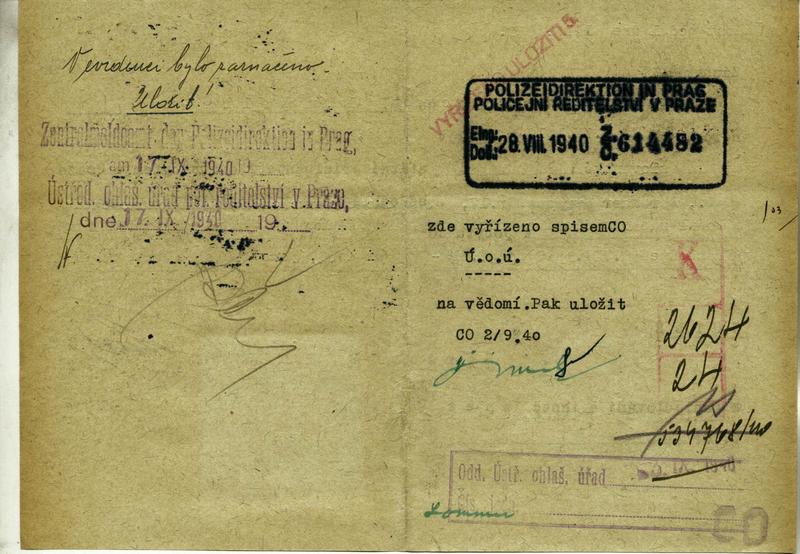 V evidenci bylo
Uložit
Zentralmeldeamt der Polizeidirektion in Prag,
am 17. IX. 1940
Ústřed. ohlaš. úřad pol. ředitelství v Praze,
dne 17. IX. 1940 19
POLIZEIDIREKTION IN PRAG
POLICEJNÍ ŘEDITELSTVÍ V PRAZE
28. VIII. 1940 614482
zde vyřízeno spisemCO
Ú.o.ú.
-----
na vědomí.Pak uložit
CO 2/9.40
K
2624
24
Odd. Ústř. ohlaš. úřad
CO